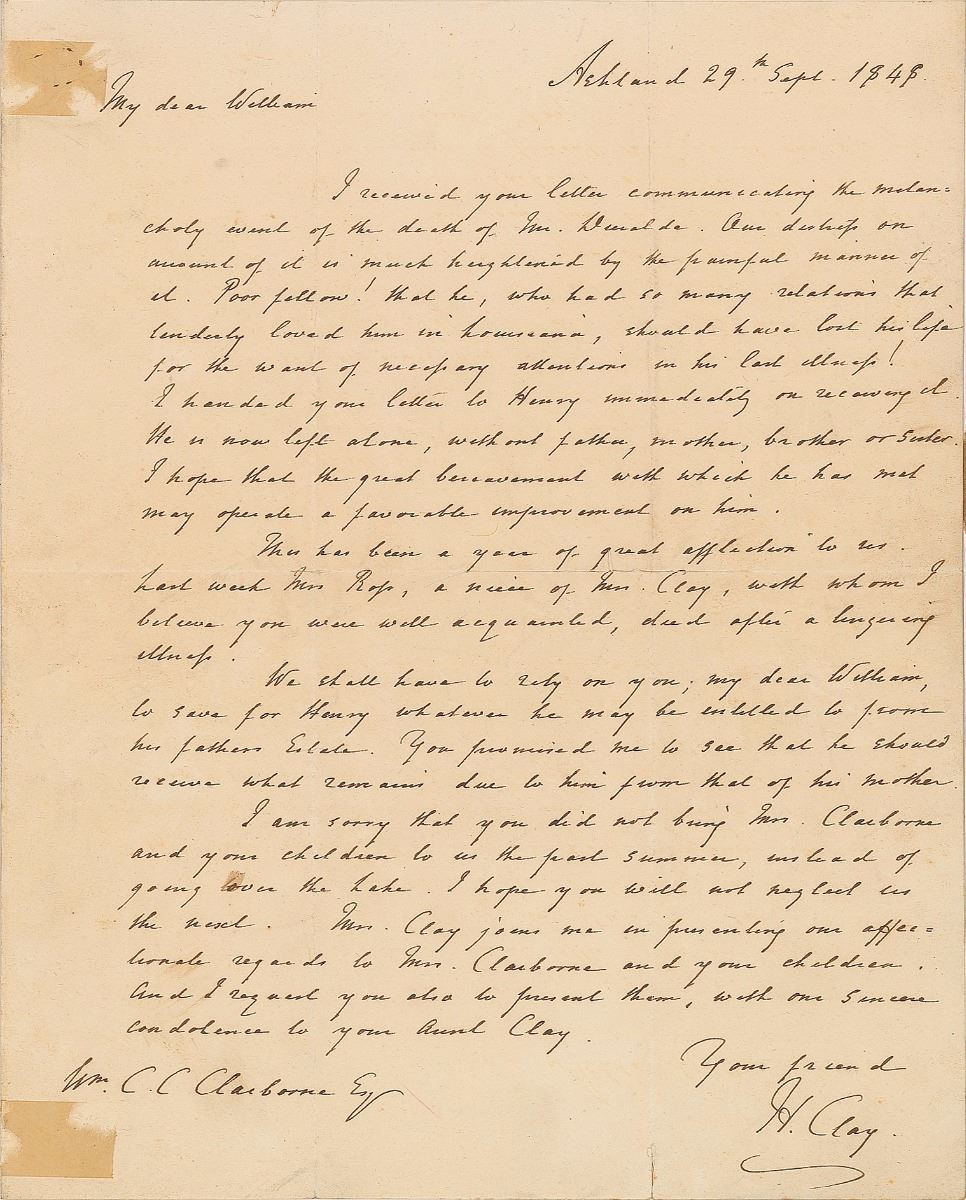 Ashland 29.th Sept. 1848.
My dear William
I received your letter communicating the melan=
choly event of the death of Mr. Duralde. Our distress on
account of it is much heightened by the painful manner of
it. Poor fellow! that he, who had so many relations that
tenderly loved him in Louisiana, should have lost his life
for the want of necessary attentions in his last illness!
I handed your letter to Henry immediately on receiving it.
He is now left alone, without father, mother, brother or sister.
I hope that the great bereavement with which he has met
may operate a favorable improvement on him.
This has been a year of great affliction to us.
Last week Mrs Ross, a niece of Mrs. Clay, with whom I
believe you were well acquainted, died after a lingering
illness.
We shall have to rely on you, my dear William,
to save for Henry whatever he may be entitled to from
his fathers Estate. You promised me to see that he should
receive what remains due to him from that of his mother.
I am sorry that you did not bring Mrs. Claiborne
and your children to us the past summer, instead of
going over the Lake. I hope you will not neglect us
the next. Mrs. Clay joins me in presenting our affec=
tionate regards to Mrs. Claiborne and your children.
And I request you also to present them, with our sincere
condolence to your Aunt Clay.
Your friend
H. Clay.
Wm. C. C. Claiborne Esq